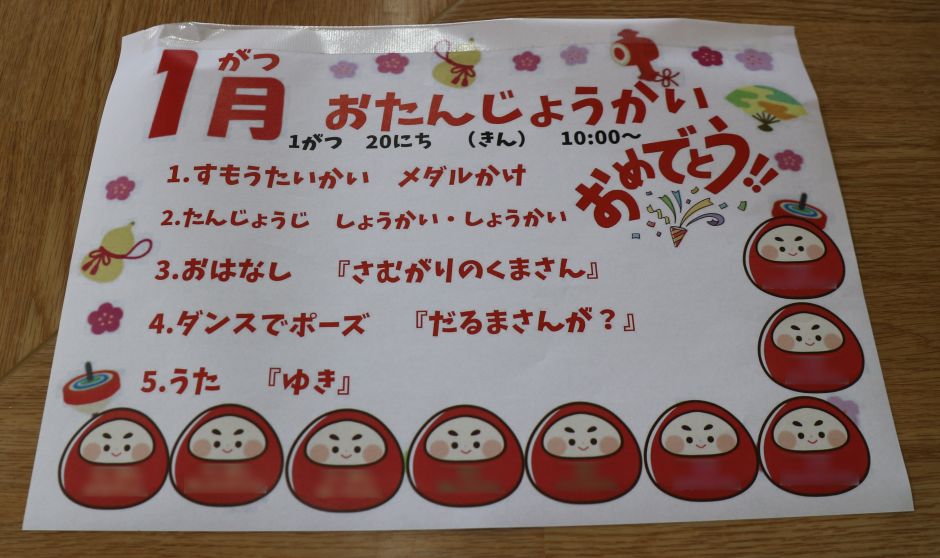 1月
がつ
おたんじょうかい
1がつ 20にち (きん) 10:00～
おめでとう!!
1.すもうたいかい メダルかけ
2.たんじょうじ しょうかい・しょうかい
3.おはなし 『さむがりのくまさん』
4.ダンスでポーズ 『だるまさんが？』
5.うた 『ゆき』